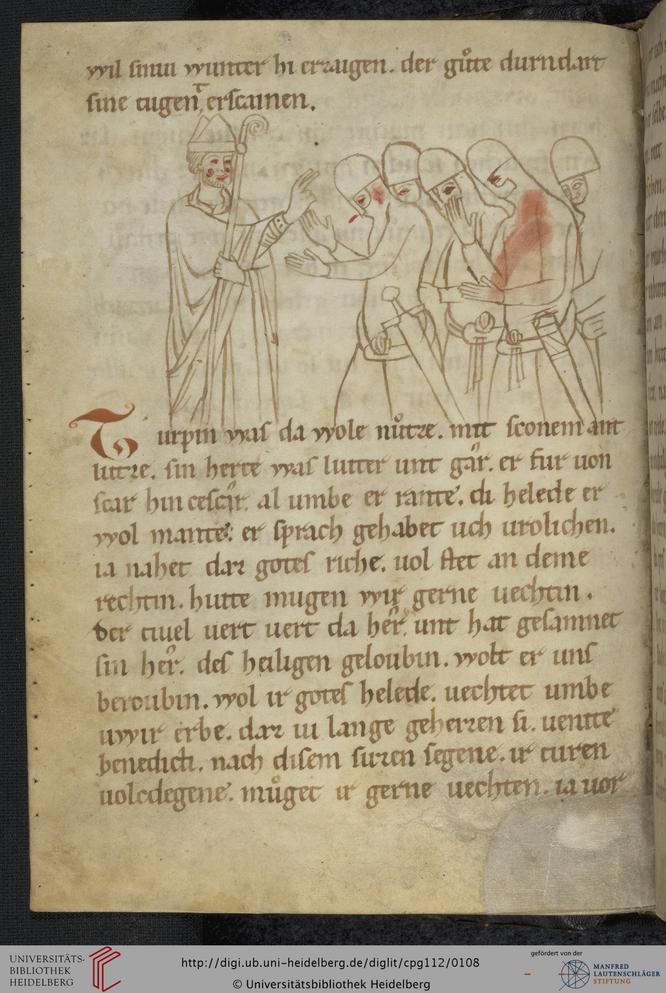 wil sinui wunter hi erzaigen. der gůte durndart
sine tugent erscainen.
Turpin was da wole nůtze. mit sconem ant
lutze. sin herce was lutter unt gar. er fur uon
scar hin cescar. al umbe er rante. di helede er
wol mante. er sprach gehabet uch urolichen.
ia nahet daz gotes riche. uol stet an deme
rechtin. hutte mugen wir gerne uechtin.
der tiuel uert uert da her. unt hat gesamnet
sin her. des heiligen geloubin. wolt er uns
beroubin. wol ir gotes helede. uechtet umbe
uwir erbe. daz iu lange geheizen si. uenite
benedicti. nach disem suzen segene. ir turen
uolcdegene. můget ir gerne uechten. ia uor
UNIVERSITÄTS-
BIBLIOTHEK
HEIDELBERG
http://digi.ub.uni-heidelberg.de/diglit/cpg112/0108
© Universitätsbibliothek Heidelberg
gefördert von der
MANFRED
LAUTENSCHLÄGER
STIFTUNG